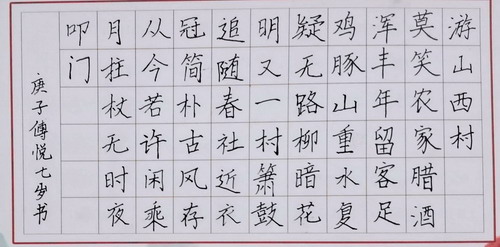 游山西村
莫笑农家腊酒
浑丰年留客足
鸡豚山重水复
疑无路柳暗花
明又一村箫鼓
追随春社近衣
冠简朴古风存
从今若许闲乘
月拄杖无时夜
叩门
庚子傅悦七岁书